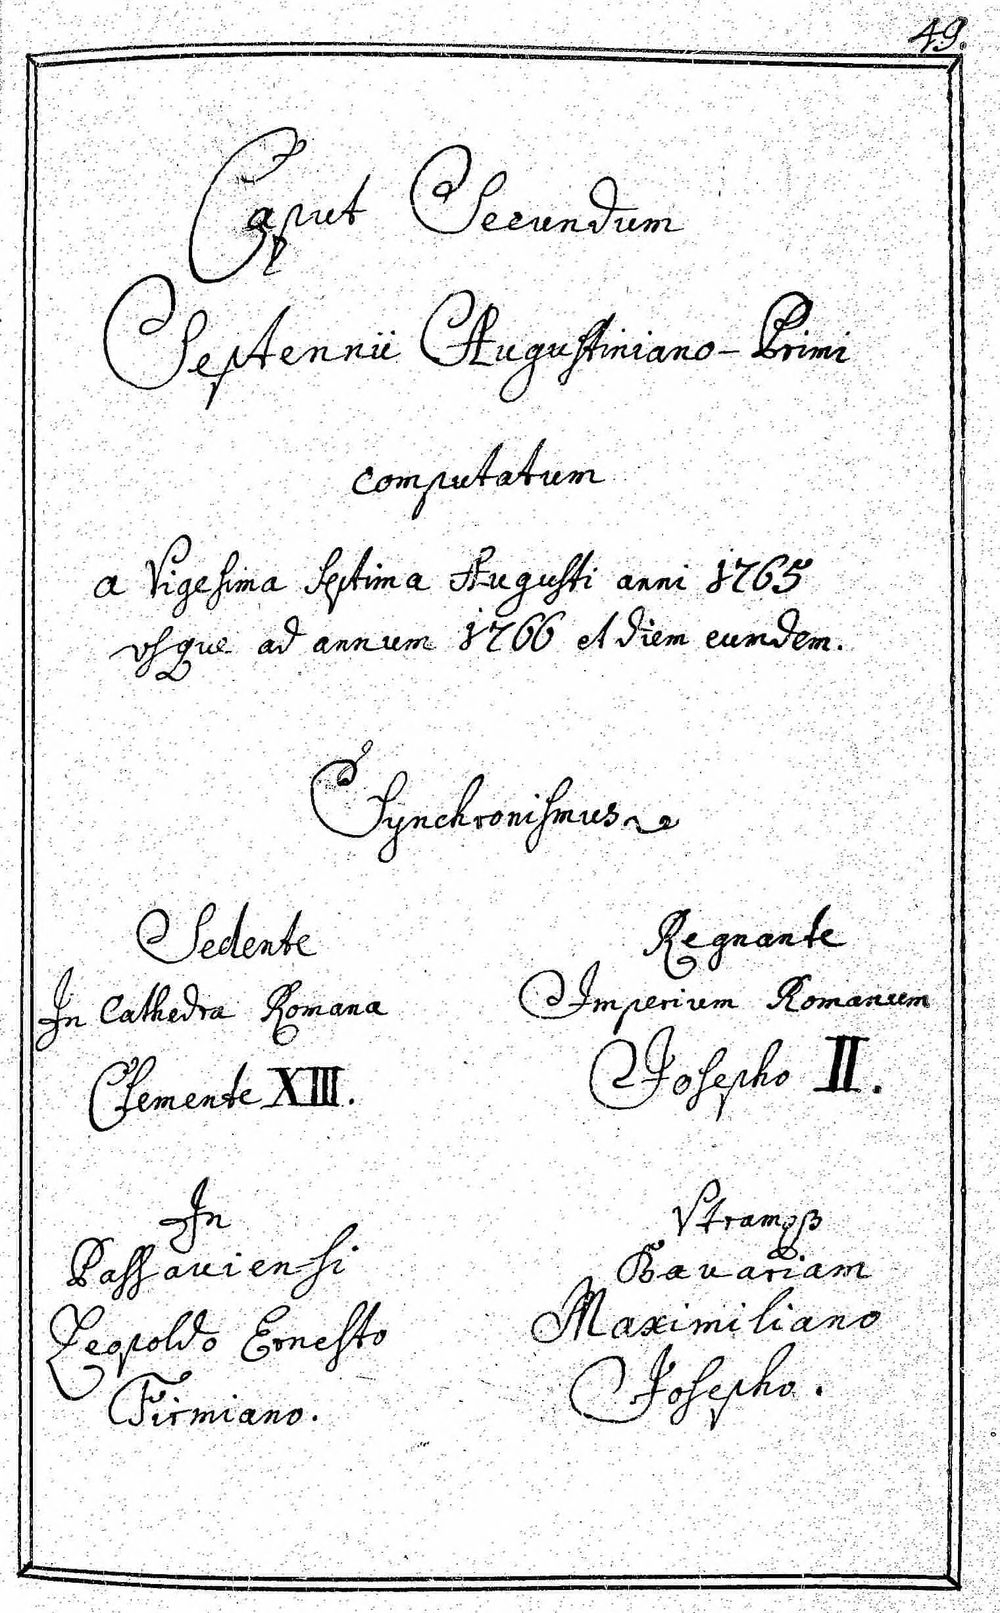 49.
Caput Secundum
Septennii Augustiniano-Primi
computatum
a Vigesima septima Augusti anni 1765
vsque ad annum 1766 et diem eumdem.
Synchronismus
Sedente
In Cathedra Romana
Clemente XIII.
Regnante
Imperium Romanum
Josepho II.
In
Passaviensi
Leopoldo Ernesto
Firmiano.
Vtramqꝫ
Bavariam
Maximiliano
Josepho.